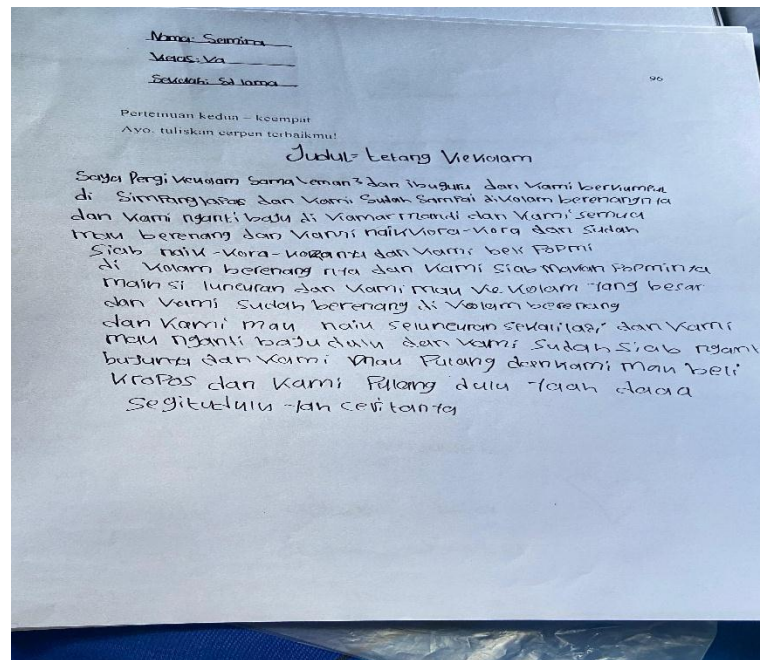 Nama: Semina
Kelas: Va
Sekolah: Sd lama
96
Pertemuan kedua – keempat
Ayo, tuliskan cerpen terbaikmu!
Judul= tetang Kekolam
Saya Pergi kekolam Sama teman² dan ibuguru dan Kami berkumpul
di Simpang lapas dan Kami Sudah Sampai dikolam berenangnya
dan Kami nganti baju di Kamar mandi dan Kami semua
mau berenang dan Kami naik Kora-Kora dan Sudah
Siab naik-Kora-Koranya dan Kami beli PoPmi
di Kolam berenang nya dan Kami Siab makan PoPminya
main si luncuran dan Kami mau Ke Kolam yang besar
dan Kami Sudah berenang di Kolam berenang
dan Kami mau naik seluncuran sekalilagi, dan Kami
mau nganti baju dulu dan Kami Sudah Siab nganti
bujunya dan Kami mau Pulang dan Kami mau beli
KroPos dan Kami Pulang dulu yaah daaa
Segitudulu yah ceritanya